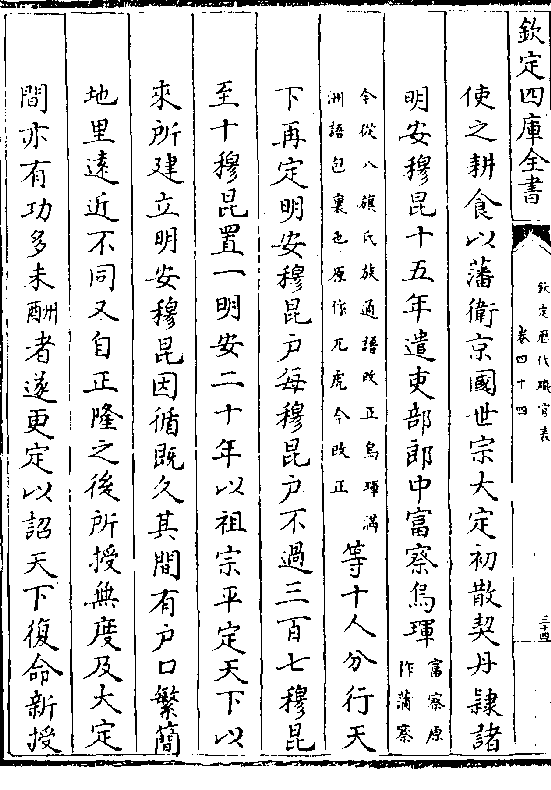 欽定四庫全書
欽定歷代職官表
卷四十四
三十四
使之耕食以藩衛京國世宗大定初散契丹隸諸
明安穆昆十五年遣吏部郎中富察烏琿富察原
作蒲察
今從八旗氏族通語改正烏琿滿
洲語包裹也原作兀虎今改正等十人分行天
下再定明安穆昆户每穆昆户不過三百七穆昆
至十穆昆置一明安二十年以祖宗平定天下以
來所建立明安穆昆因循既久其間有户口繁簡
地里遠近不同又自正隆之後所授無度及大定
間亦有功多未酬者遂更定以詔天下復命新授